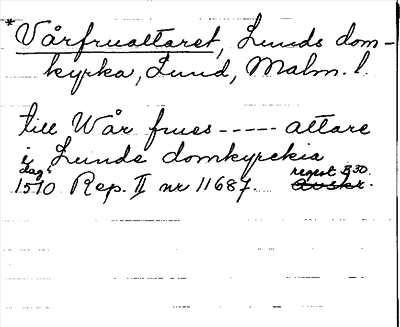 *Vårfrualtaret, Lunds dom-
kyrka, Lund, Malm. l.
till Wår frues ----- altare
i Lunde domkyrckia
dag
1510 Rep. II nr 11687. regest B30.
Avskr.